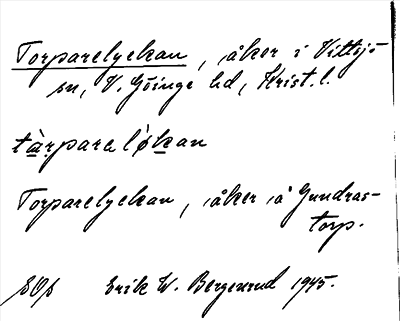 Torparelyckan, åker i Vittsjö
sn, V. Göinge hd, Krist. l.
tàrpareløkan
Torparelyckan, åker å Gundras-
torp.
Erik W. Bergenrud 1945.